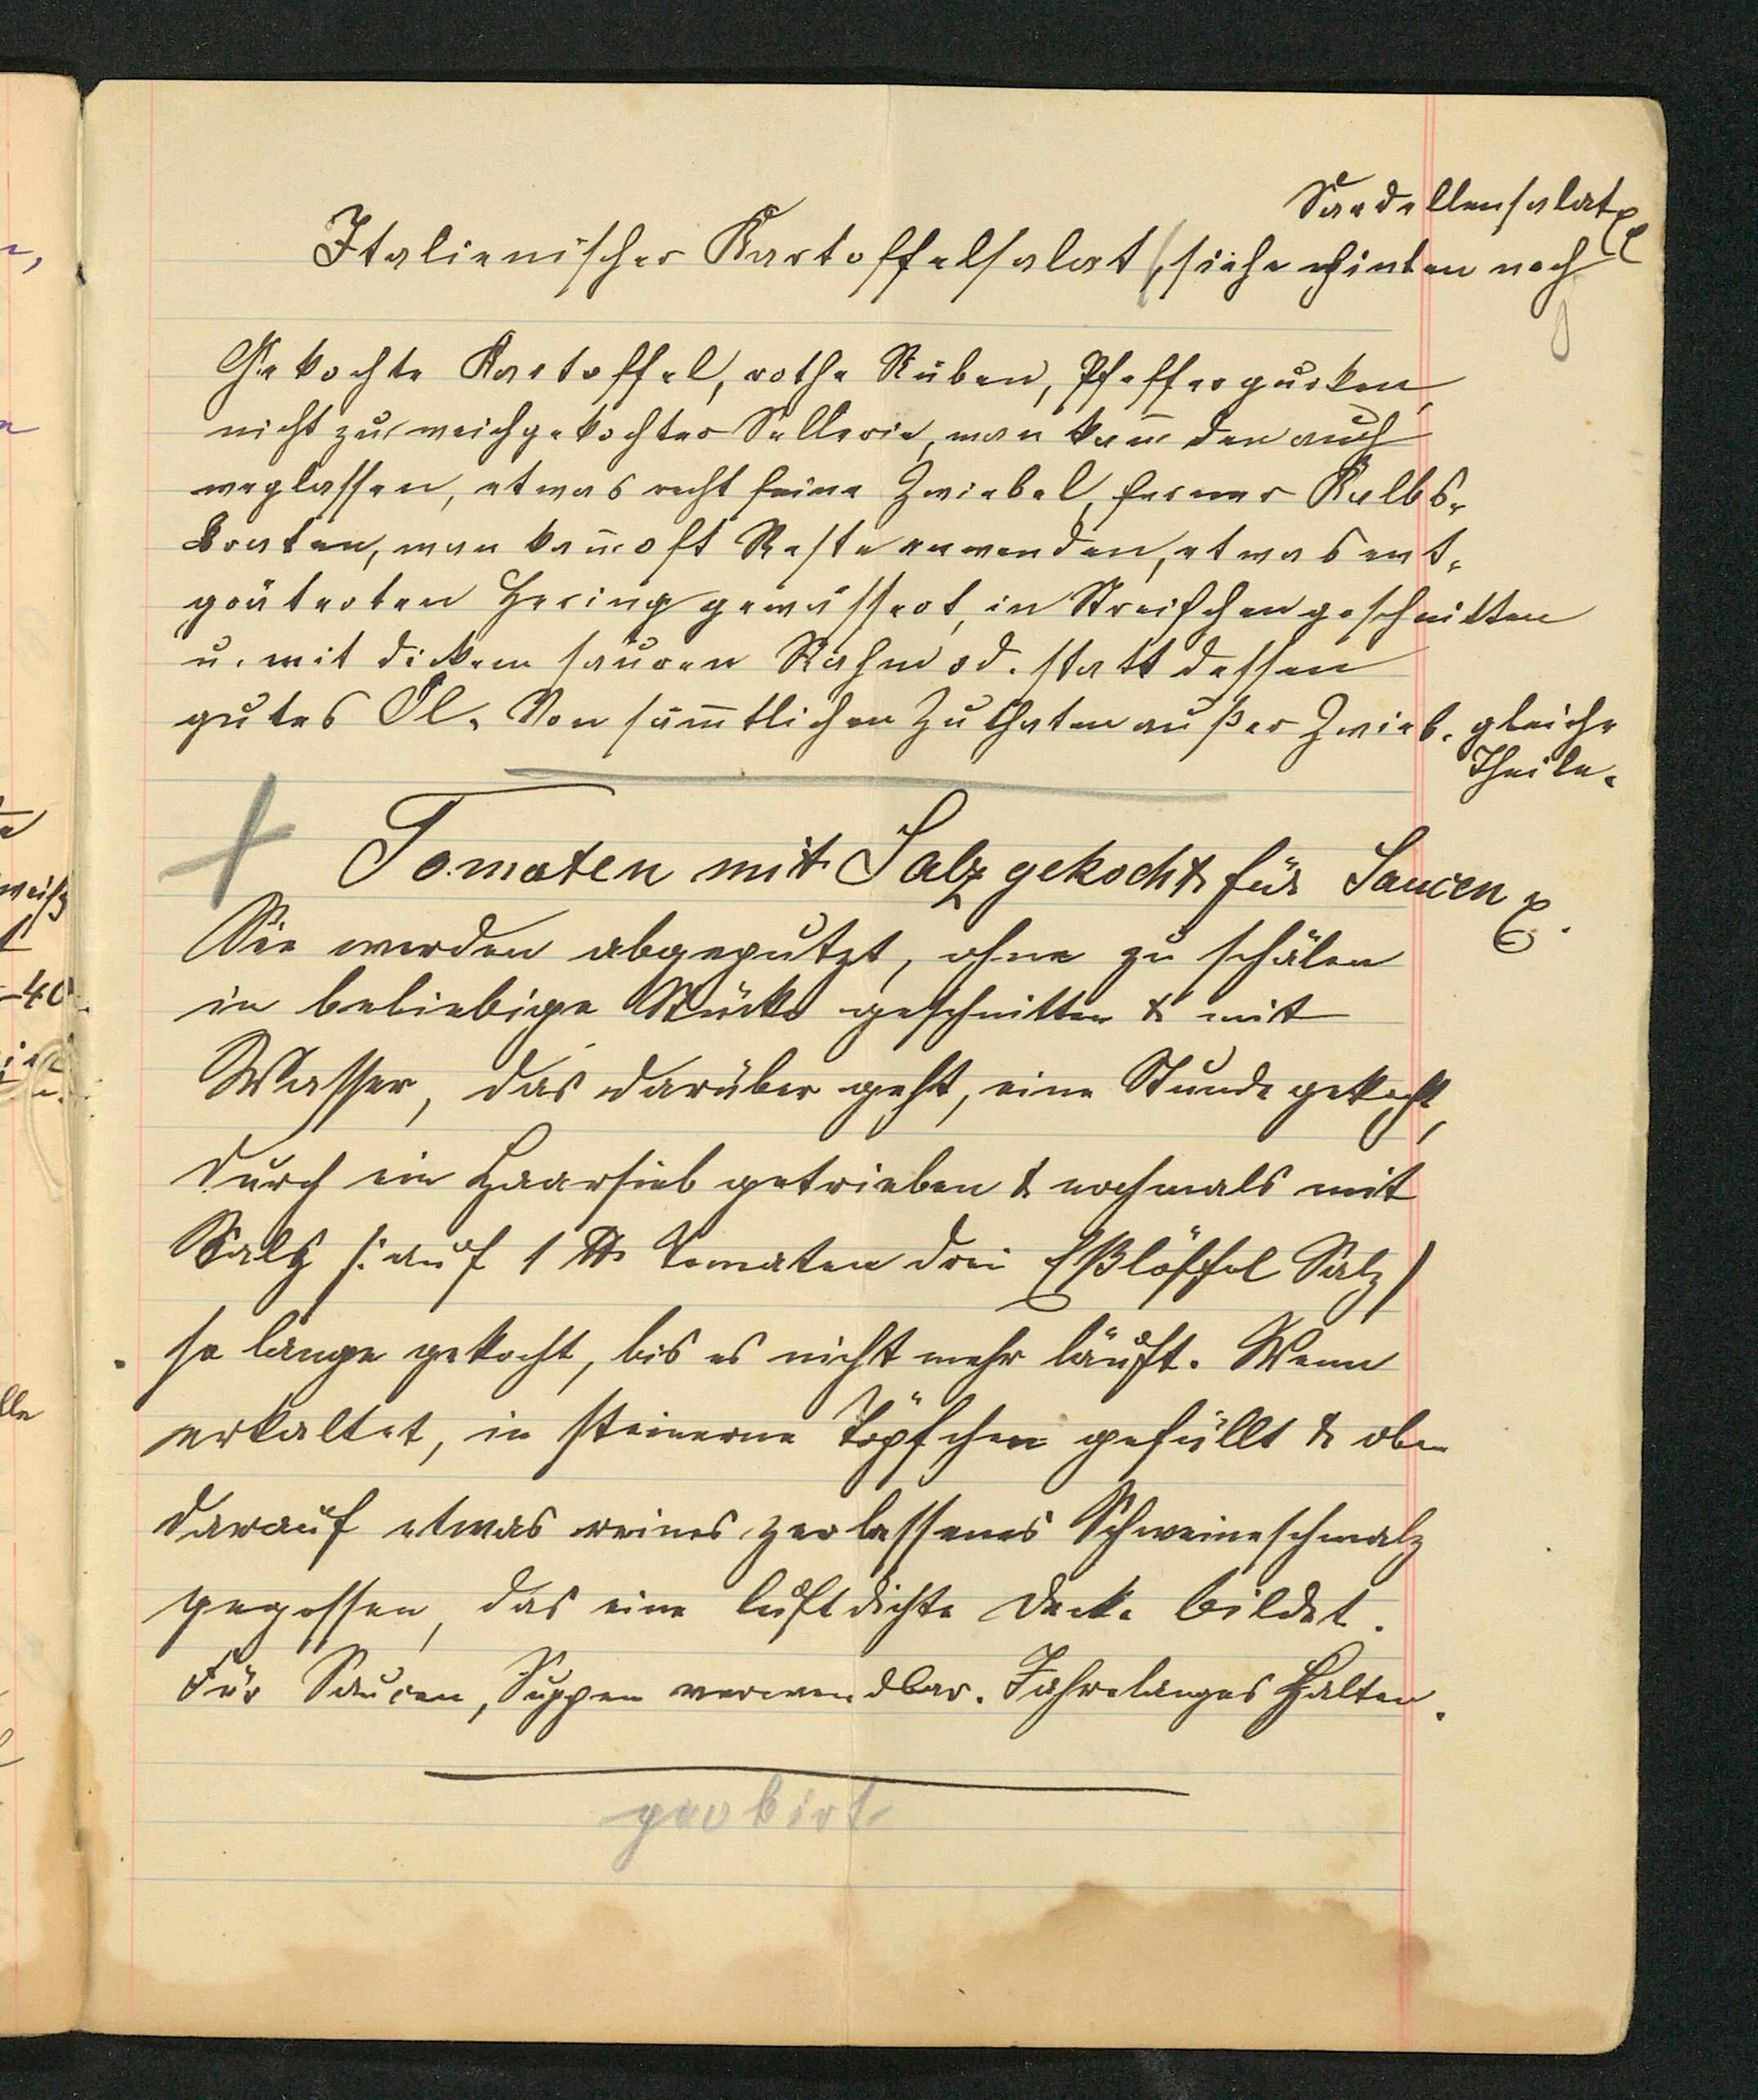 Sardellensalat
Italienischer Kartoffelsalat (siehe hinten nach
Gekochte Kartoffel, rothe Rüben, Pfeffergurken,
nicht zu weichgekochter Sellerie, man kan̅ den auch
weglassen, etwas recht feine Zwiebel, ferner Kalbs-
braten, man kan̅ oft Reste anwenden, etwas ent-
gräteten Hering gewässert, in Streifchen geschnitten
u. mit dickem sauren Rahm od. statt dessen
gutes Öl. Von säm̅tlichen Zuthaten außer Zwieb. gleiche
Theile.
+ Tomaten mit Salz gekocht für Saucen &.
Sie werden abgeputzt, ohne zu schälen
in beliebige Stücke geschnitten & mit
Wasser, das darüber geht, eine Stunde gekocht,
durch ein Haarsieb getrieben & nochmals mit
Salz /: auf 1 ℔ Tomaten drei Eßlöffel Salz /
so lange gekocht, bis es nicht mehr läuft. Wenn
erkaltet, in steinerne Töpfchen gefüllt & oben
darauf etwas reines zerlassenes Schweineschmalz
gegossen, das eine luftdichte Decke bildet.
Für Saucen, Suppen verwendbar. Jahrelanges Halten.
probirt